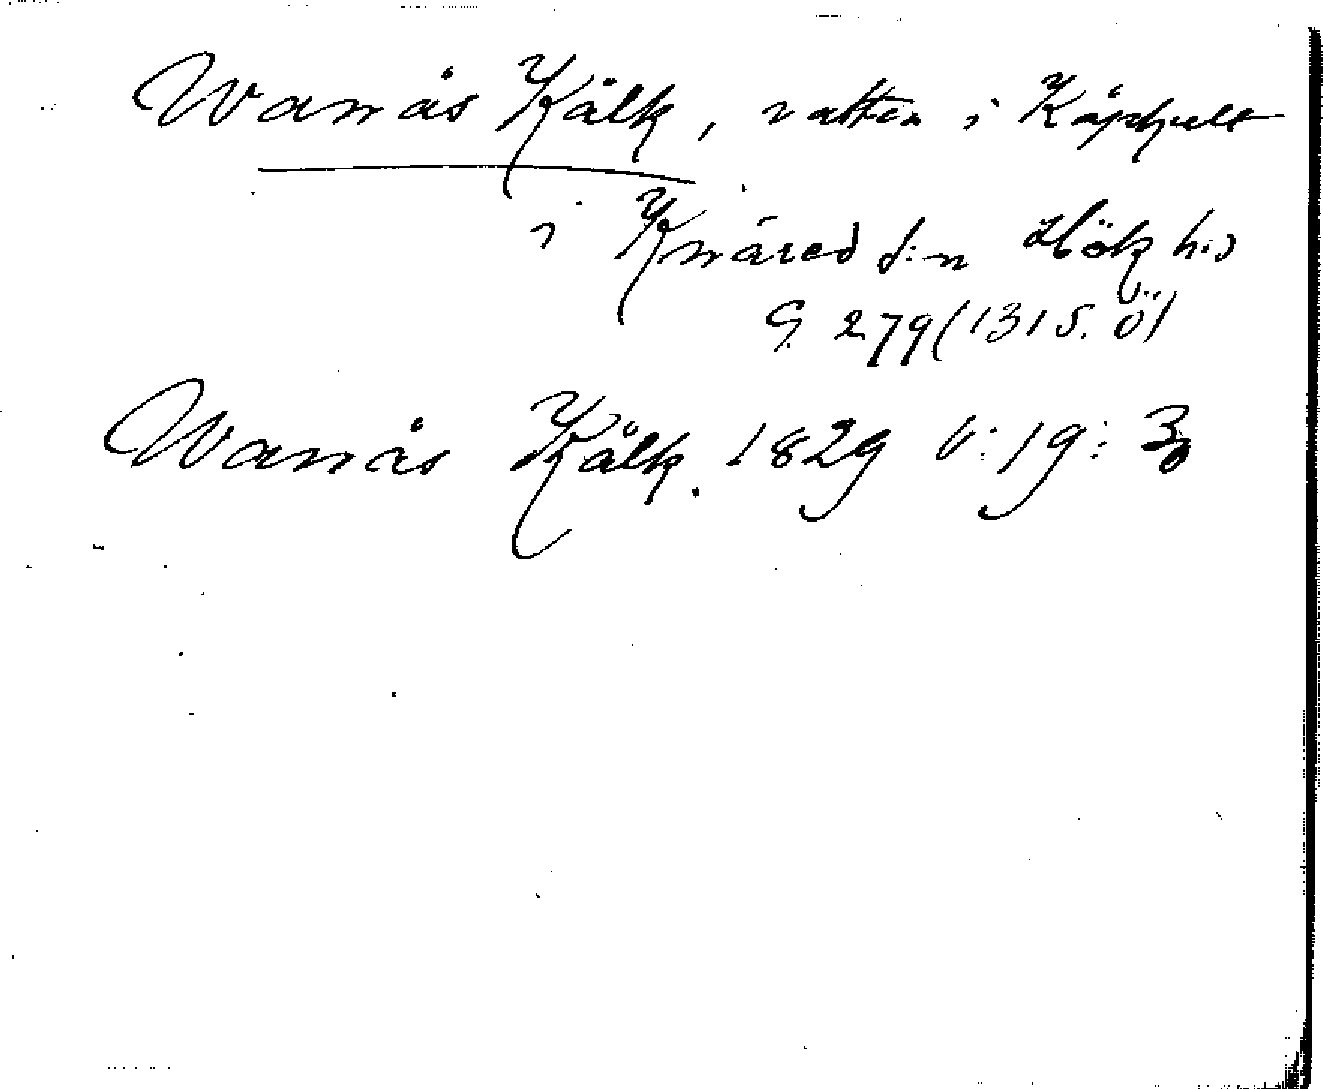 Wanås Kälk, vatten i Kåphult
i Knäred s:n Hök h:d
G. 279 (1315. Ö)
Wanås Kålk. 1829 V: 19: 3